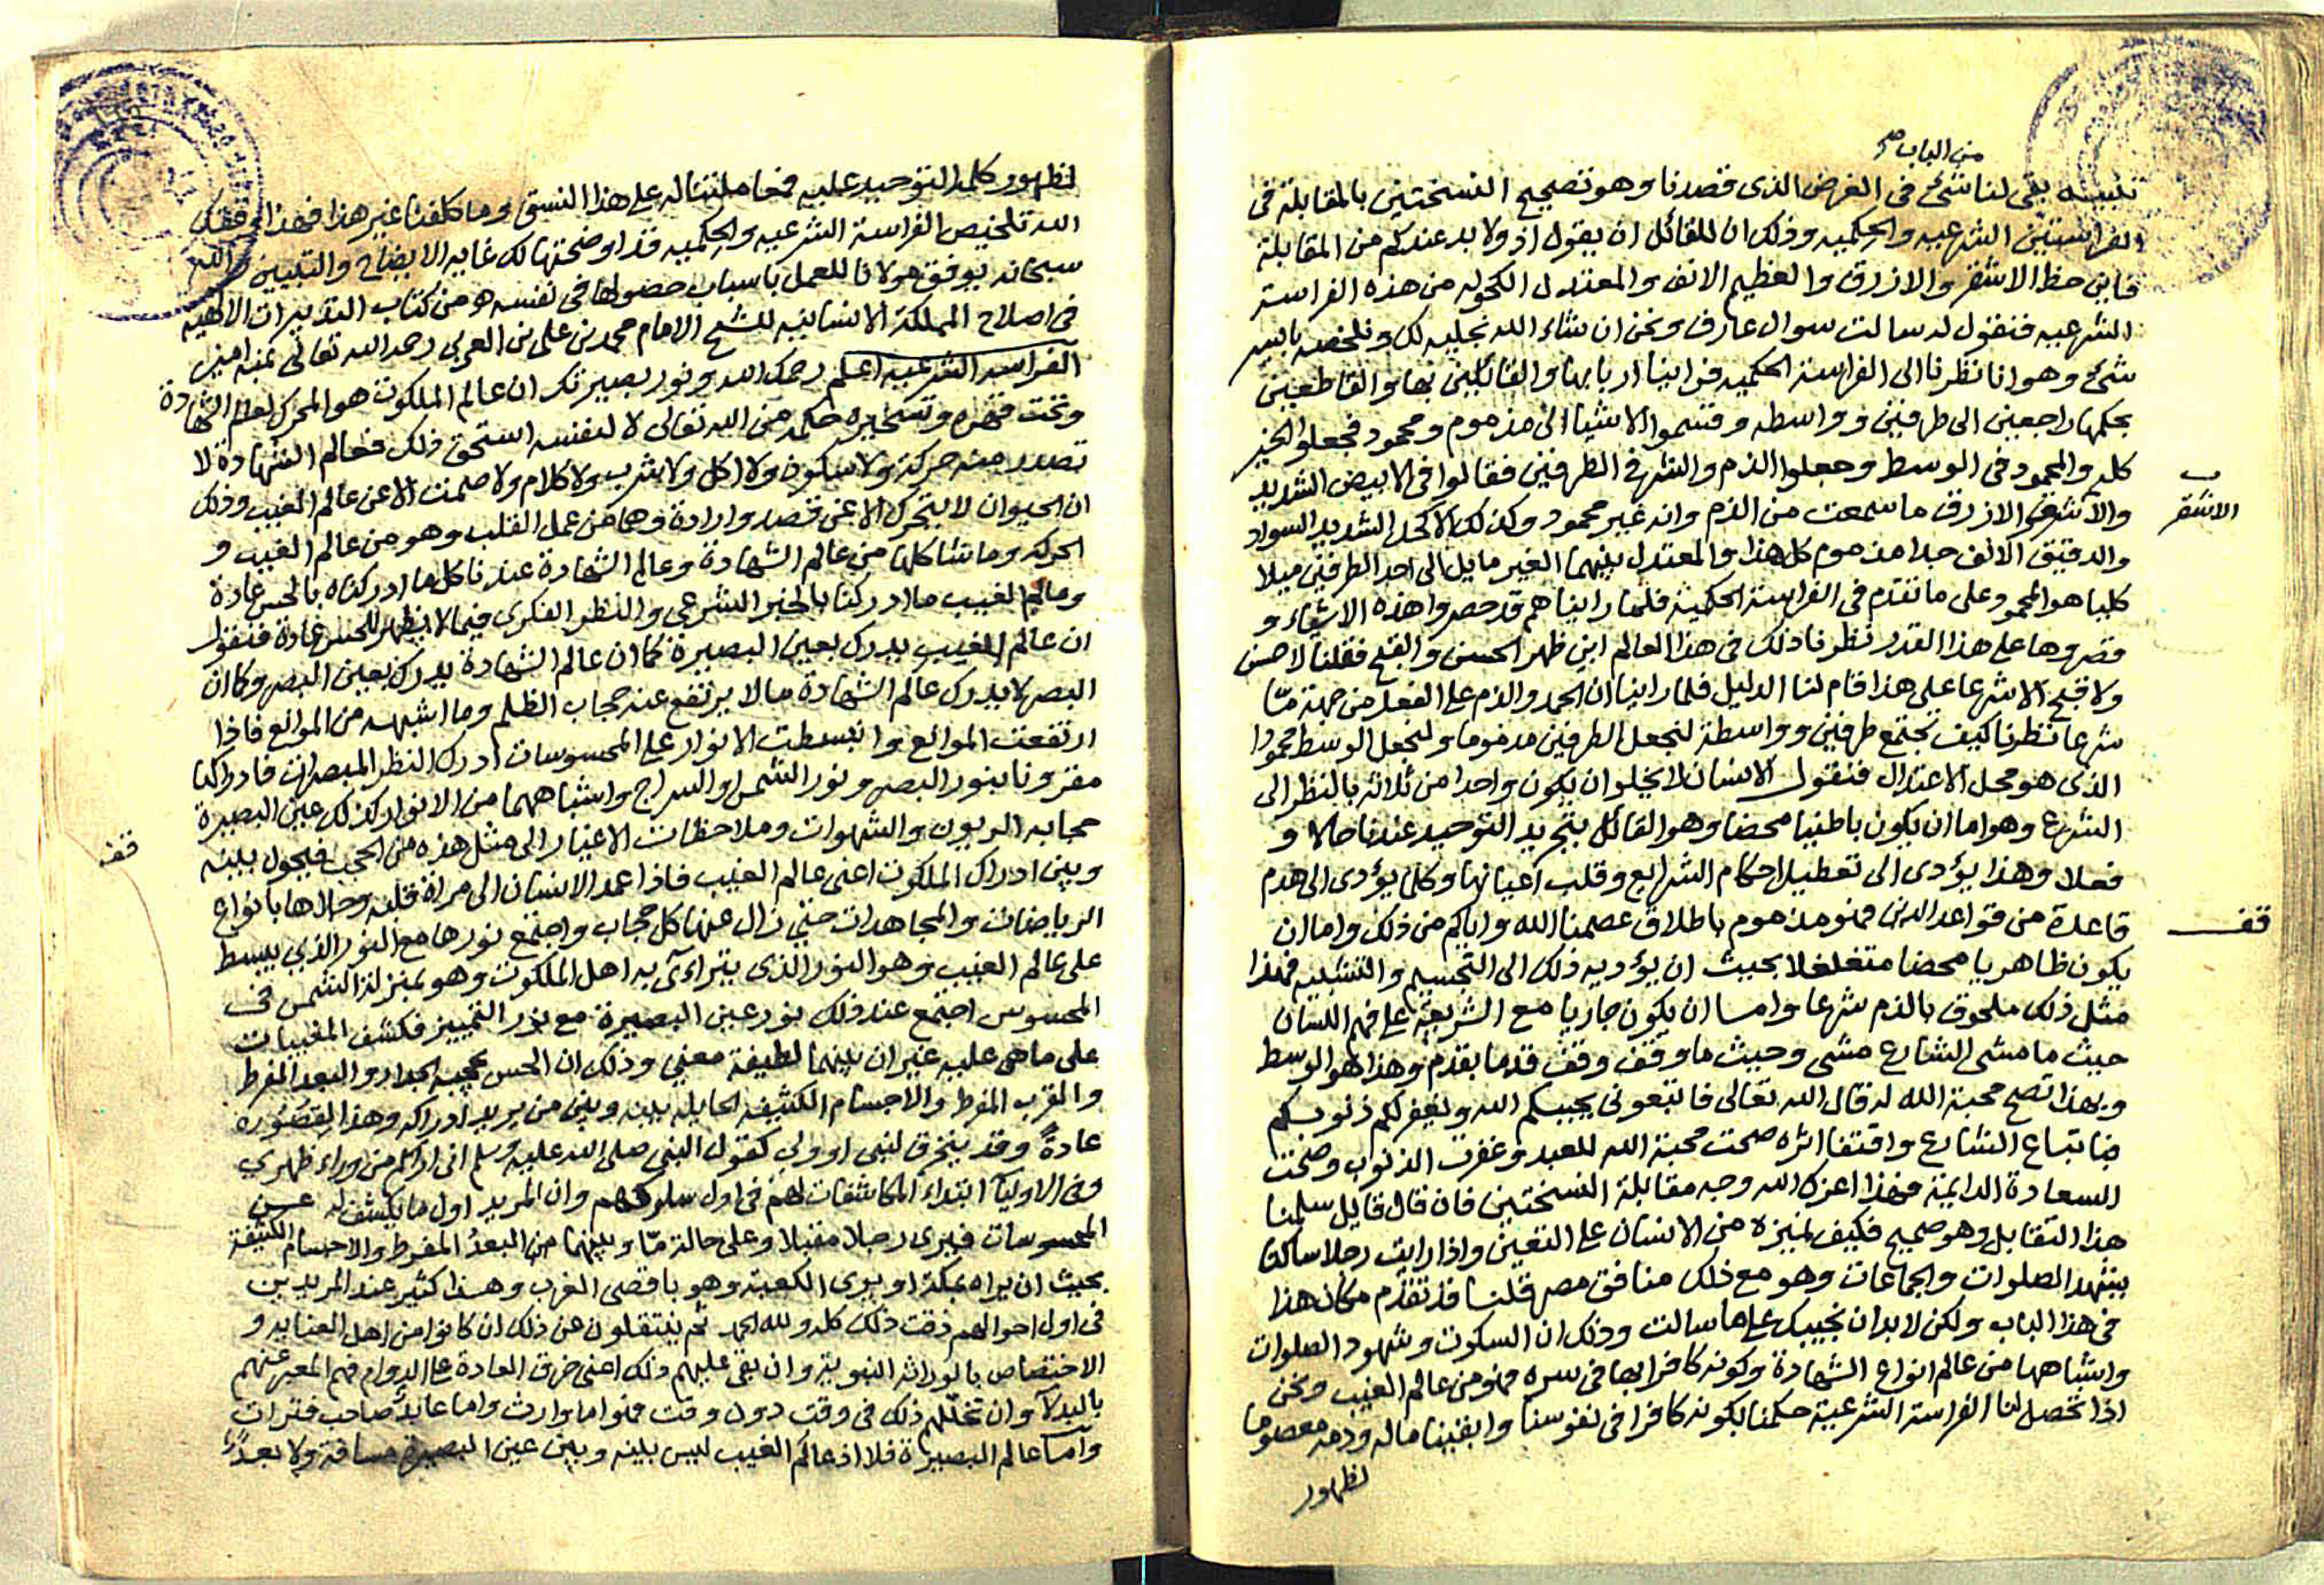 من الباب صح
تنبيه بقى لنا شئ فى الغرض الذى قصدنا وهو تصحيح النسختين بالمقابلة فى
الفراستين الشرعيه والحكميه وذلك ان للقائل ان يقول اذ ولا بد عندكم من المقابلة
فاين حظ الاشقر والازرق والعظيم الانف والمعتدل الكحوله من هذه الفراسة
الشرعيه فنقول له سالت سوال عارف ونحن ان شاء الله نجليه لك ونلخصه بايسر
شئ وهو انا نظرنا الى الفراسة الحكميه فراينا اربابها والقائلين بها والقاطعين
بحكمها راجعين الى طرفين وواسطه وقسموا الاشيا الى مذموم ومحمود فجعلوا الخير
كله والمحمود فى الوسط وجعلوا الذم والشر فى الطرفين فقالوا فى الابيض الشديد
والاشقر الازرق ما سمعت من الذم وانه غير محمود وكذلك الاكحل الشديد السواد
ب
الاشقر
والدقيق الانف جدا مذموم كل هذا والمعتدل بينهما الغير مايل الى احد الطرفين ميلا
كليا هو المحمود على ما تقدم فى الفراسة الحكمية فلما رايناهم قد حصروا هذه الاشياء و
قصروها على هذا القدر نظرنا ذلك فى هذا العالم اين ظهر الحسن والقبح فقلنا لا حسن
ولا قبح الا شرعا على هذا قام لنا الدليل فلما راينا ان الحمد والذم على الفعل من جهة مّا
شرعا نظرنا كيف نجتمع طرفين وواسطة لنجعل الطرفين مذموما ولنجعل الوسط محمودا
الذى هو محل الاعتدال فنقول الانسان لا يخلو ان يكون واحدا من ثلاثه بالنظر الى
الشرع وهو اما ان يكون باطنيا محضا وهو القائل بتجريد التوحيد عندنا حالا و
فعلا وهذا يؤدى الى تعطيل احكام الشرايع وقلب اعيانها وكلما يؤدى الى هدم
قاعدة من قواعد الدين فهو مذموم باطلاق عصمنا الله واياكم من ذلك واما ان
قف
يكون ظاهريا محضا متغلغلا بحيث ان يؤديه ذلك الى التجسيم والتشبيه فهذا
مثل ذلك ملحوق بالذم شرعا واما ان يكون جاريا مع الشريعة على فهم اللسان
حيث ما مشى الشارع مشى وحيث ما وقف وقف قدما بقدم وهذا هو الوسط
وبهذا تصح محبة الله له قال الله تعالى فاتبعونى يحببكم الله ويغفر لكم ذنوبكم
فباتباع الشارع واقتفا اثره صحت محبة الله للعبد وغفرت الذنوب وصحت
السعادة الدايمة فهذا اعزك الله وجه مقابلة النسختين فان قال قايل سلمنا
هذا التقابل وهو صحيح فكيف نميزه من الانسان على التعيين واذا رايت رجلا ساكتا
يشهد الصلوات والجماعات وهو مع ذلك منافق مصر قلنا قد تقدم مكان هذا
فى هذا الباب ولكن لا بد ان نجيبك على ما سالت وذلك ان السكوت وشهود الصلوات
واشباهها من عالم انواع الشهادة وكونه كافرا بها فى سره فهو من عالم الغيب ونحن
اذا تحصل لنا الفراسة الشرعية حكمنا بكونه كافرا فى نفوسنا وابقينا ماله ودمه معصوما
لظهور
لظهور كلمة التوحيد عليه فمعاملتنا له على هذا النسق وما كلفنا غير هذا فهذا وفقك
الله تلخيص الفراسة الشرعيه والحكميه قد اوضحتها لك غايه الايضاح والتبيين والله
سبحانه يوفق مولانا للعمل باسباب حصولها فى نفسه هو من كتاب التدبيرات الالهيه
فى اصلاح المملكة الانسانيه للشيخ الامام محمد بن على بن العربى رحمه الله تعالى بمنه امين
الفراسه الشرعيه اعلم رحمك الله ونور بصيرتك ان عالم الملكوت هو المحرك لعالم الشهادة
وتحت قهره وتسخيره حكمة من الله تعالى لا لنفسه استحق ذلك فعالم الشهادة لا
تصدر منه حركة ولا سكون ولا اكل ولا شرب ولا كلام ولا صمت الا عن عالم الغيب وذلك
ان الحيوان لا يتحرك الا عن قصد وارادة وهما من عمل القلب وهو من عالم الغيب و
الحركة وما شاكلها من عالم الشهادة وعالم الشهادة عندنا كل ما ادركناه بالحس عادة
وعالم الغيب ما ادركنا بالخبر الشرعى والنظر الفكرى فيما لا يظهر للحس عادة فنقول
ان عالم الغيب يدرك بعين البصيرة كما ان عالم الشهادة يدرك بعين البصر وكما ان
البصر لا يدرك عالم الشهادة ما لا يرتفع عنه حجاب الظلم وما اشبهه من الموانع فاذا
ارتفعت الموانع وانبسطت الانوار على المحسوسات ادرك النظر المبصرات فادراكنا
مقرونا بنور البصر ونور الشمس او السراج واشباههما من الانوار كذلك عين البصيرة
حجابه الريون والشهوات وملاحظات الاغيار الى مثل هذه من الحجب فيحول بينه
قف
وبين ادراك الملكوت اعنى عالم الغيب فاذا عمد الانسان الى مرآة قلبه وجلاها بانواع
الرياضات والمجاهدات حتى زال عنها كل حجاب واجتمع نورها مع النور الذى يبسط
على عالم الغيب وهو النور الذى يتراءى به اهل الملكوت وهو بمنزلة الشمس فى
المحسوس اجتمع عند ذلك نور عين البصيرة مع نور التمييز فكشف المغيبات
على ما هى عليه غير ان بينهما لطيفة معنى وذلك ان الحس يحجبه الجدار والبعد المفرط
والقرب المفرط والاجسام الكثيفه الحايله بينه وبين من يريد ادراكه وهذا القصوره
عادةً وقد ينخرق لنبى او ولى كقول النبى صلى الله عليه وسلم انى اراكم من وراء ظهرى
وفى الاوليا ابتداء المكاشفات لهم فى اول سلوكهم وان المريد اول ما يكشف له عن
المحسوسات فيرى رجلا مقبلا وعلى حالة مّا وبينهما من البعد المفرط والاجسام الكثيفة
بحيث ان يراه بمكة او يرى الكعبة وهو باقصى الغرب وهذا كثير عند المريدين
فى اول احوالهم ذقت ذلك كله ولله الحمد ثم ينتقلون عن ذلك ان كانوا من اهل العنايه و
الاختصاص بالوراثة النبوية وان بقى عليهم ذلك اعنى خرق العادة على الدوام فهم المعبر عنهم
بالبدلا وان تخللهم ذلك فى وقت دون وقت فهو اما وارث واما عابد صاحب فترات
وامّا عالم البصيرة فلا اذ عالم الغيب ليس بينه وبين عين البصيرة مسافة ولا بعد